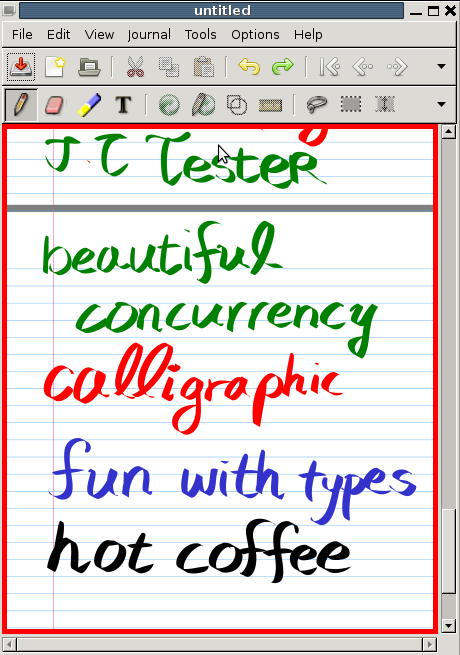 untitled
File Edit View Journal Tools Options Help
T
J.C Tester
beautiful
concurrency
calligraphic
fun with types
hot coffee